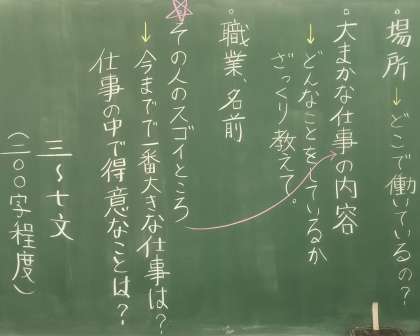 ・場所→どこで働いているの？
・大まかな仕事の内容
→どんなことをしているか
ざっくり教えて。
・職業、名前
☆その人のスゴイところ
→今までで一番大きな仕事は？
仕事の中で得意なことは？
三〜七文
（二〇〇字程度）